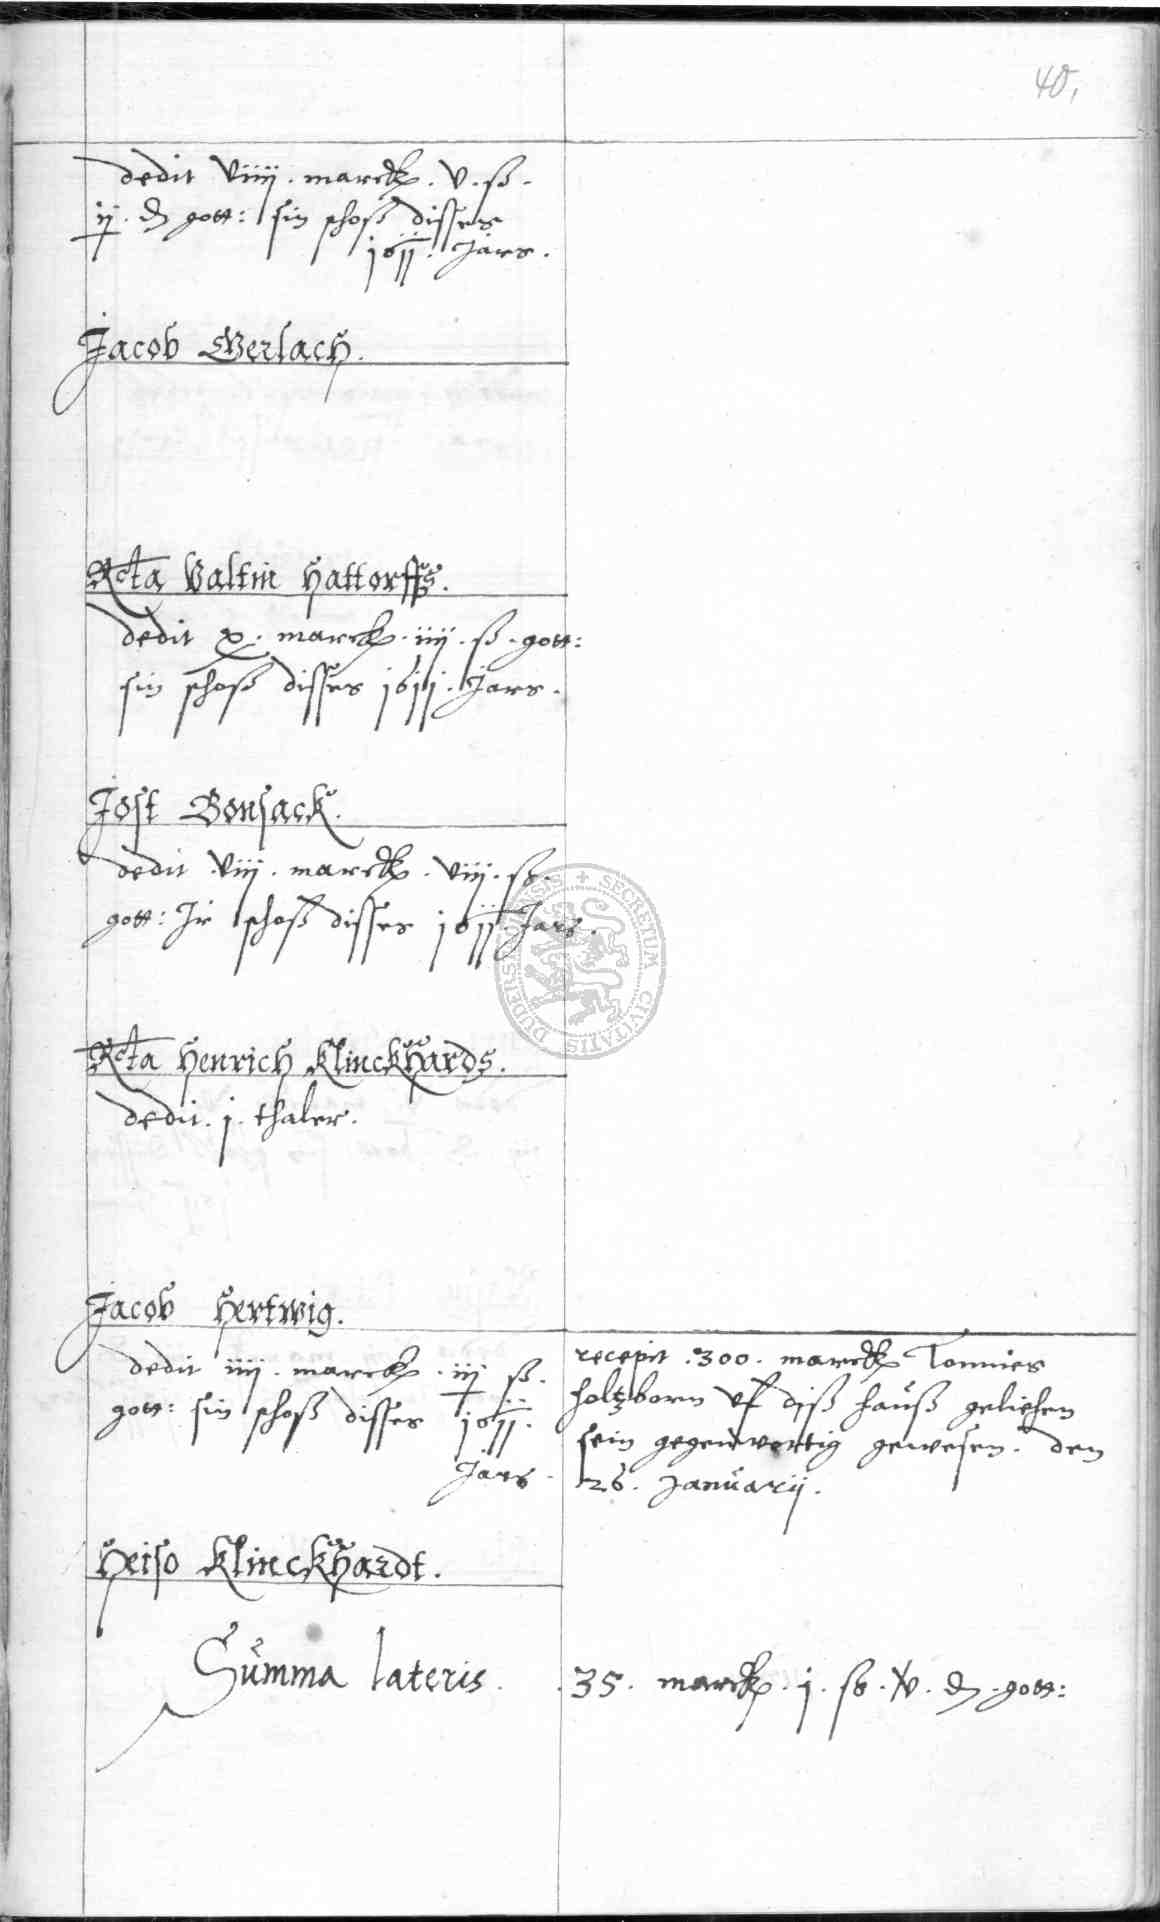 40.
dedit viiij. marck. v. ß.
ij. d gott: sin schoß disses
1611. Jars.
Jacob Gerlach.
Rcta Valtin Hattorffs.
dedit x. marck. iiij. ß. gott:
sin schoß disses 1611. Jars.
Jost Bonsack.
dedit viij. marck. viij. ß.
gott: Ir schoß disses 1611. Jars.
Rcta Henrich Klinckhards.
dedit. j. thaler.
Jacob Hertwig.
dedit iiij. marck. iij ß.
gott: sin schoß disses 1611.
Jars.
recepit .300. marck Tonnies
holtzborn uf diß hauß geliehen
sein gegenwertig gewesen. den
26. Januarij.
Heiso Klinckhardt.
Summa lateris. 35. marck. j. ß. v. d. gott:
SECRETUM CIVITATIS DUDERSTADENSIS